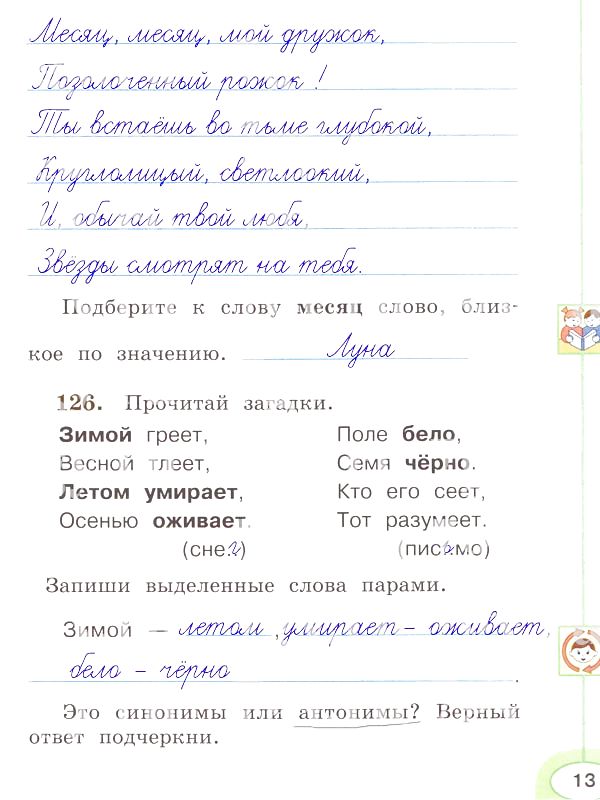 Месяц, месяц, мой дружок,
Позолоченный рожок!
Ты встаёшь во тьме глубокой,
Круглолицый, светлоокий,
И, обычай твой любя,
Звёзды смотрят на тебя.
Подберите к слову месяц слово, близ-
кое по значению. Луна
126. Прочитай загадки.
Зимой греет,
Весной тлеет,
Летом умирает,
Осенью оживает.
(снег)
Поле бело,
Семя чёрно.
Кто его сеет,
Тот разумеет.
(письмо)
Запиши выделенные слова парами.
Зимой — летом, умирает – оживает,
бело – чёрно.
Это синонимы или антонимы? Верный
ответ подчеркни.
13